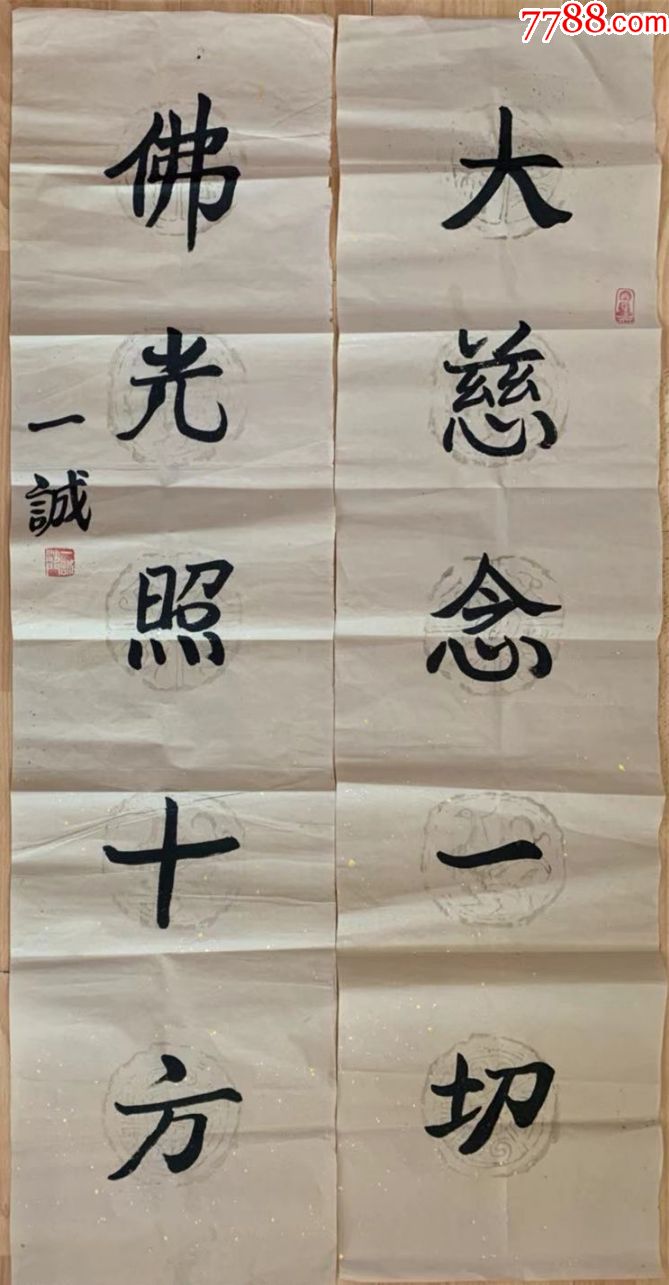 7788.com
大慈念一切
佛光照十方
一誠